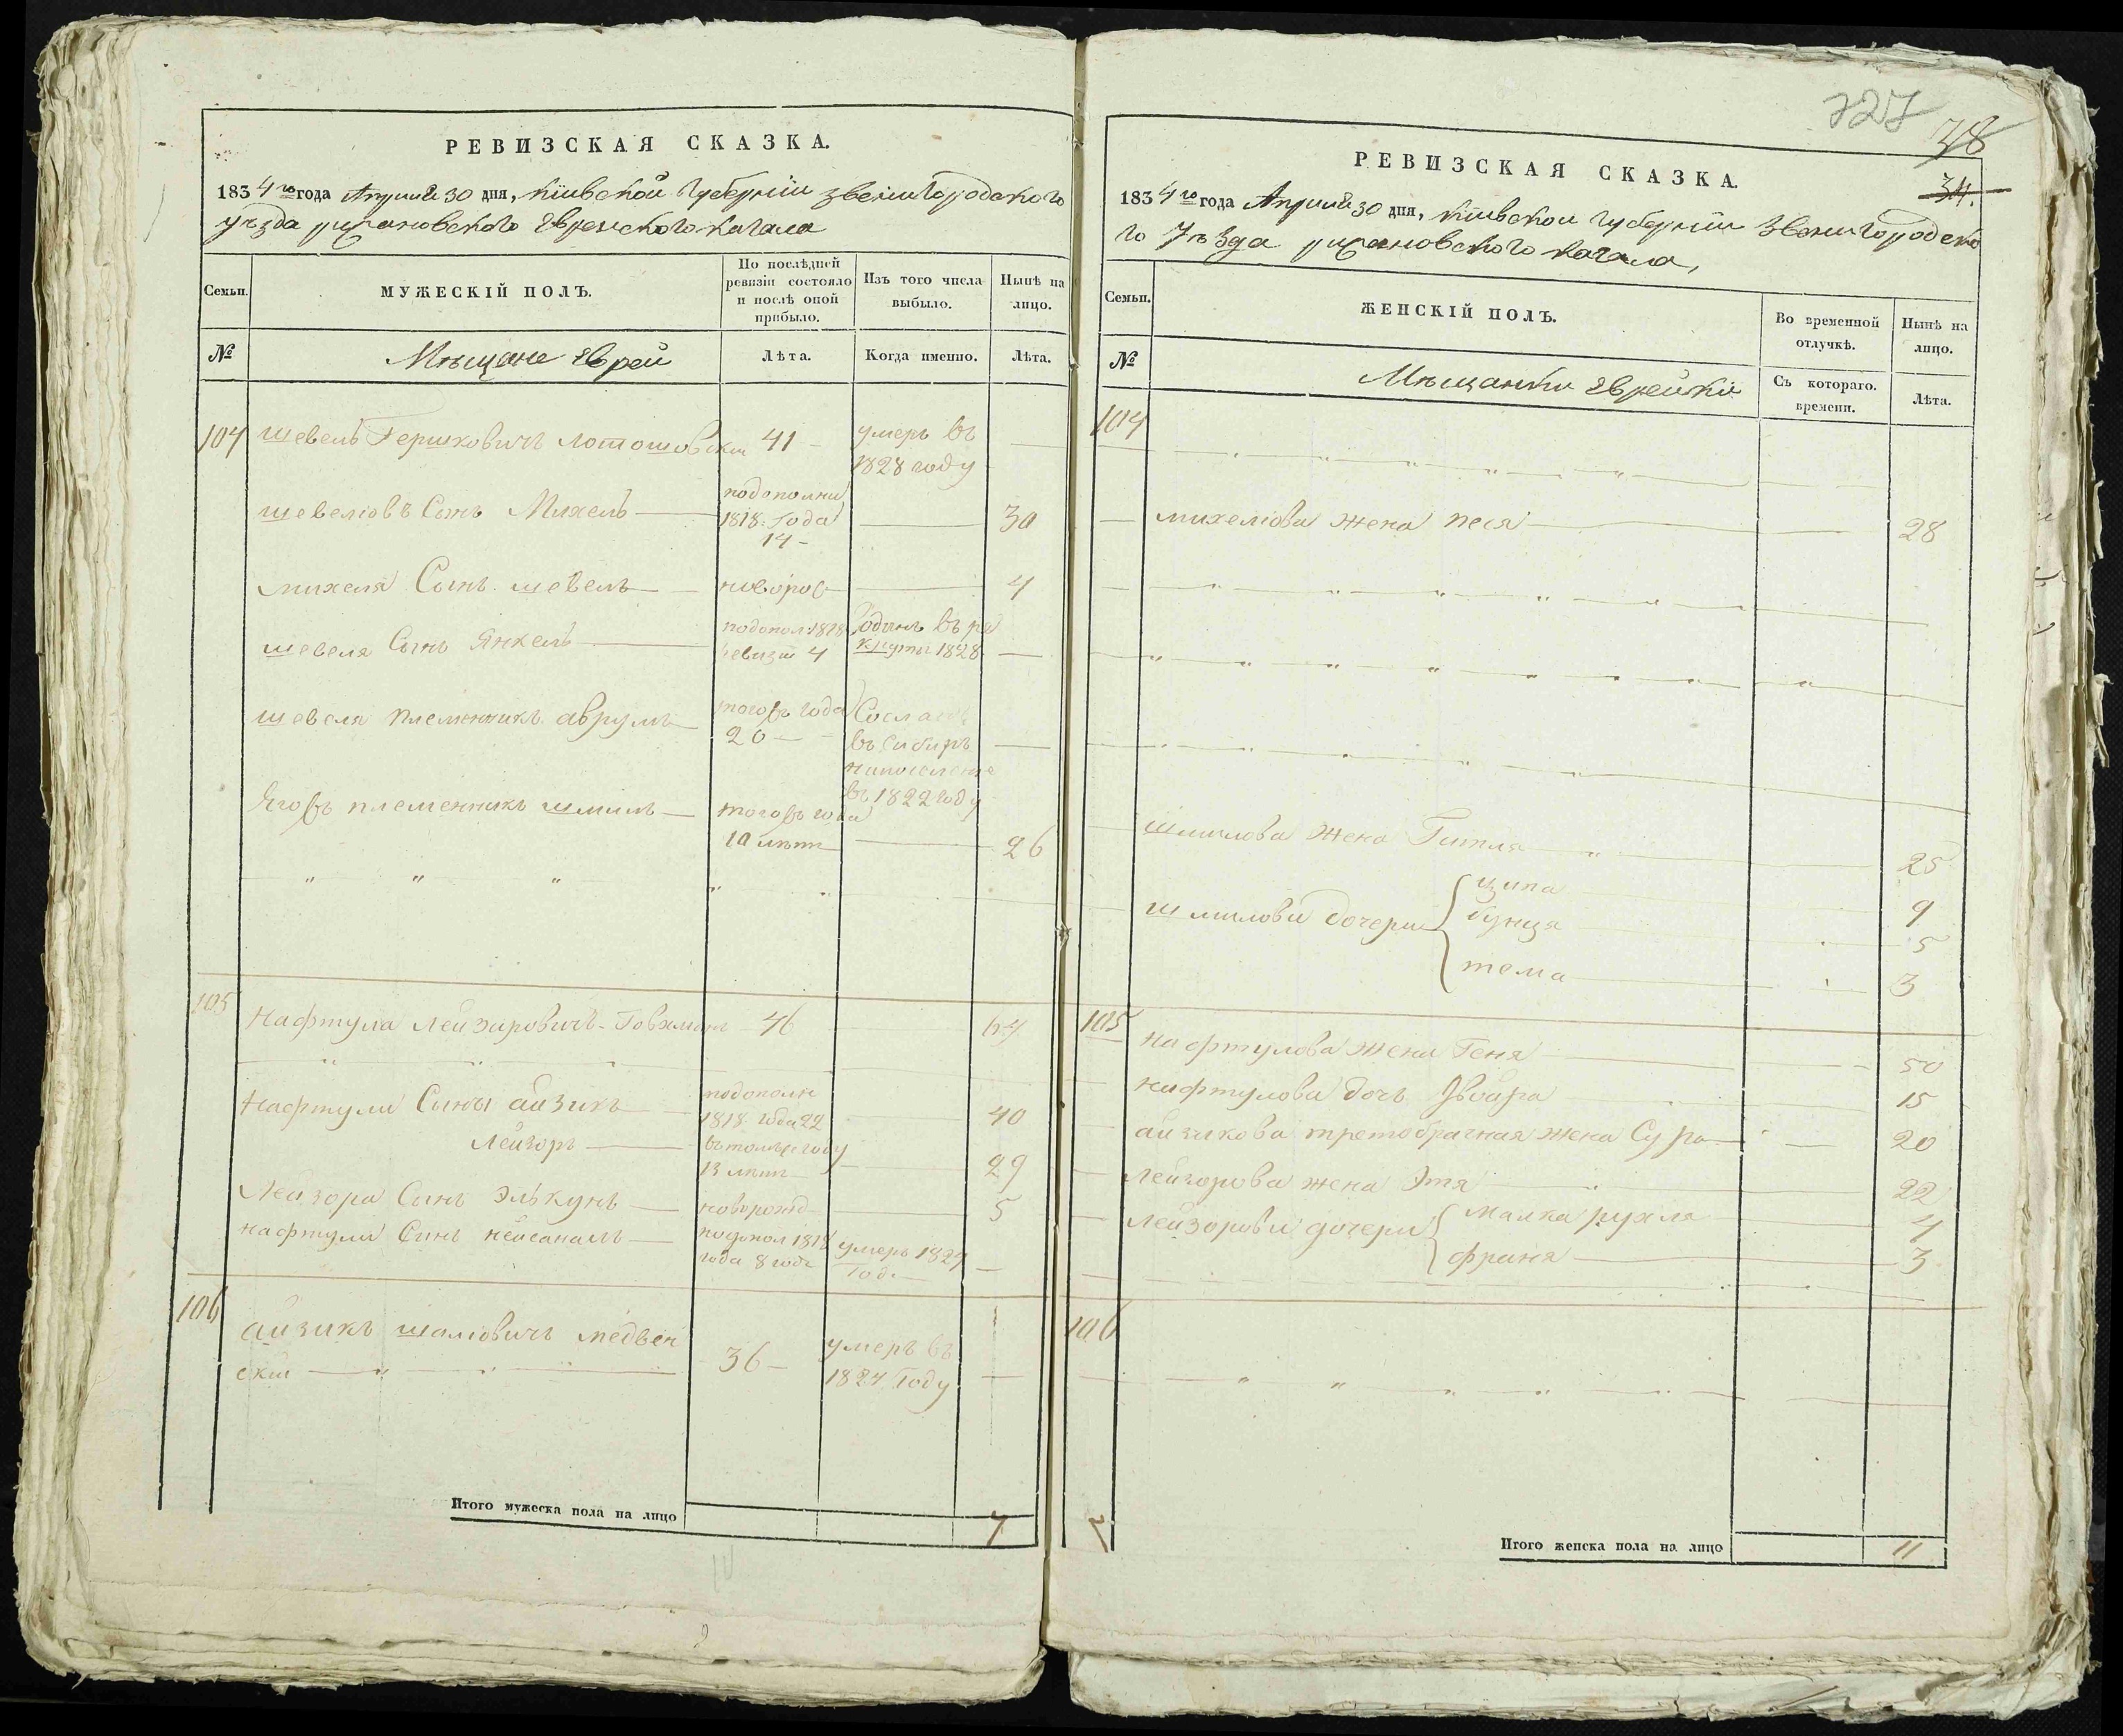 РЕВИЗСКАЯ СКАЗКА.
1834го года Априля 30 дня, Кіивской Губерніи Звенигородского
уѣзда рижановского Еврейского кагала
Семьи.
МУЖЕСКІЙ ПОЛЪ.
По послѣдней
ревизіи состояло
и послѣ оной
прибыло.
Изъ того числа
выбыло.
Нынѣ на
лицо.
№
Мѣщане Евреи
Лѣта.
Когда именно.
Лѣта.
104 шевель Гершковичъ лотошовскій 41
умеръ въ
1828 году
шевеліовъ Сынъ Михель
подополни
1818: Года
14
30
михеля Сынъ шевель новорож 4
шевеля Сынъ Янкель
подопол: 1818
ревизіи 4
одданъ въ ре
круты 1828
шевеля племенникъ аврумъ
тогожъ года
20
Сосланъ
въ Сибирь
на поселение
въ 1822 году
Егожъ племенникъ шмиль
тогожъ года
10 лѣтъ
26
105
Нафтула Лейзаровичъ 46 64
Нафтули Сыны айзикъ
подополн
1818 года 22
40
Лейзоръ
въ томъже году
13 лѣтъ
29
Лейзора Сынъ Элькунъ новорожд 5
нафтули Сынъ
подопол 1818
года 8 годъ
умеръ 1827
Год.
106
айзикъ шаліовичъ медвен
скій
36
умеръ въ
1827 Году
Итого мужеска пола на лицо 7
727
38
34.
РЕВИЗСКАЯ СКАЗКА.
1834го года Априля 30 дня, Кіивской губерніи Звенигородско
го уѣзда рижановского кагала,
Семьи.
ЖЕНСКІЙ ПОЛЪ.
Во временной
отлучкѣ.
Нынѣ на
лицо.
№
Мѣщанки Еврейки
Съ котораго.
времени.
Лѣта.
104
михеліова жена песя 28
Шмилова жена Гитля 25
Шмилови дочери
ципа 9
бунця 5
тема 3
105
нафтулова жена Геня 50
нафтулова дочь Двойра 15
айзикова третобрачная жена Сура 20
Лейзорова жена Этя 22
Лейзорови дочери
Малка рухля 4
франя 3
106
7
Итого женска пола на лицо 11